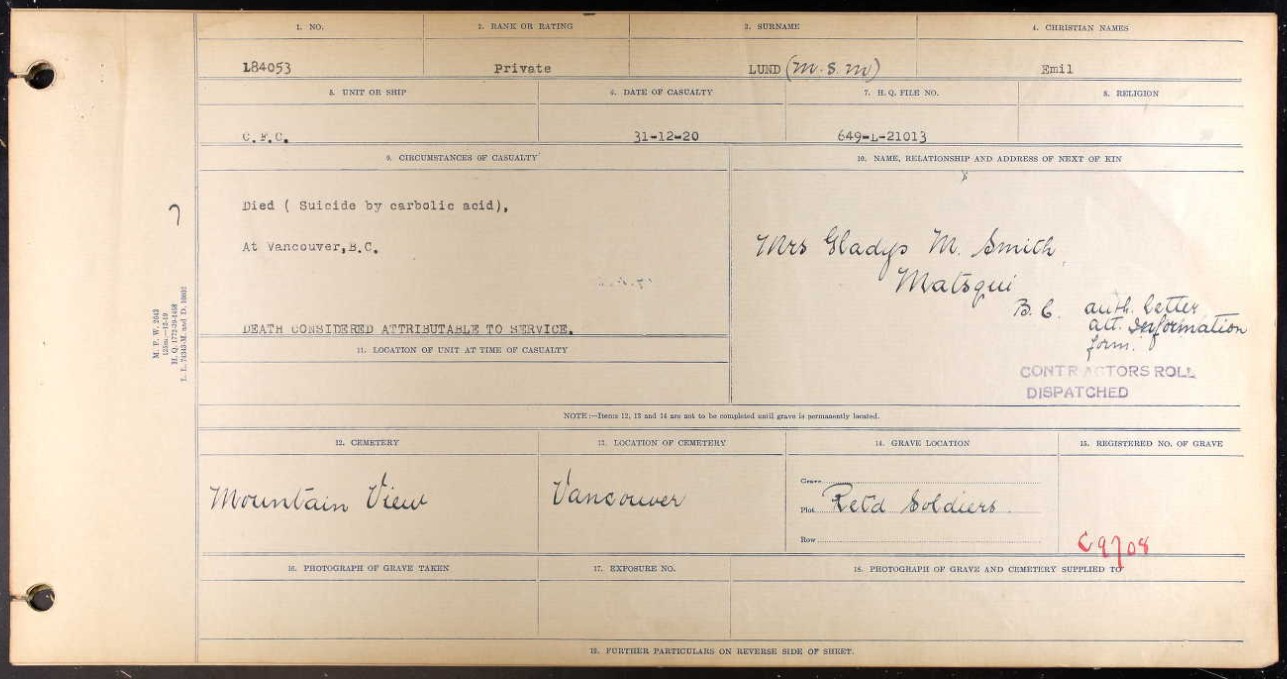 1. NO.
2. RANK OR RATING
3. SURNAME
4. CHRISTIAN NAMES
184053
Private
LUND (M.S.M)
Emil
5. UNIT OR SHIP
6. DATE OF CASUALTY
7. H.Q. FILE NO.
8. RELIGION
C.F.C.
31-12-20
649-L-21013
9. CIRCUMSTANCES OF CASUALTY
10. NAME, RELATIONSHIP AND ADDRESS OF NEXT OF KIN
Died ( Suicide by carbolic acid),
At Vancouver,B.C.
DEATH CONSIDERED ATTRIBUTABLE TO SERVICE.
Mrs Gladys M. Smith
Matsqui
B.C.
auth. letter
att. Information
form.
CONTRACTORS ROLL
DISPATCHED
11. LOCATION OF UNIT AT TIME OF CASUALTY
NOTE:—Items 12, 13 and 14 are not to be completed until grave is permanently located.
12. CEMETERY
13. LOCATION OF CEMETERY
14. GRAVE LOCATION
15. REGISTERED NO. OF GRAVE
Mountain View
Vancouver
Grave
Plot Retd Soldiers.
Row
C9708
16. PHOTOGRAPH OF GRAVE TAKEN
17. EXPOSURE NO.
18. PHOTOGRAPH OF GRAVE AND CEMETERY SUPPLIED TO
19. FURTHER PARTICULARS ON REVERSE SIDE OF SHEET.
M. F. W. 2642
H. Q. 1772-39-1458